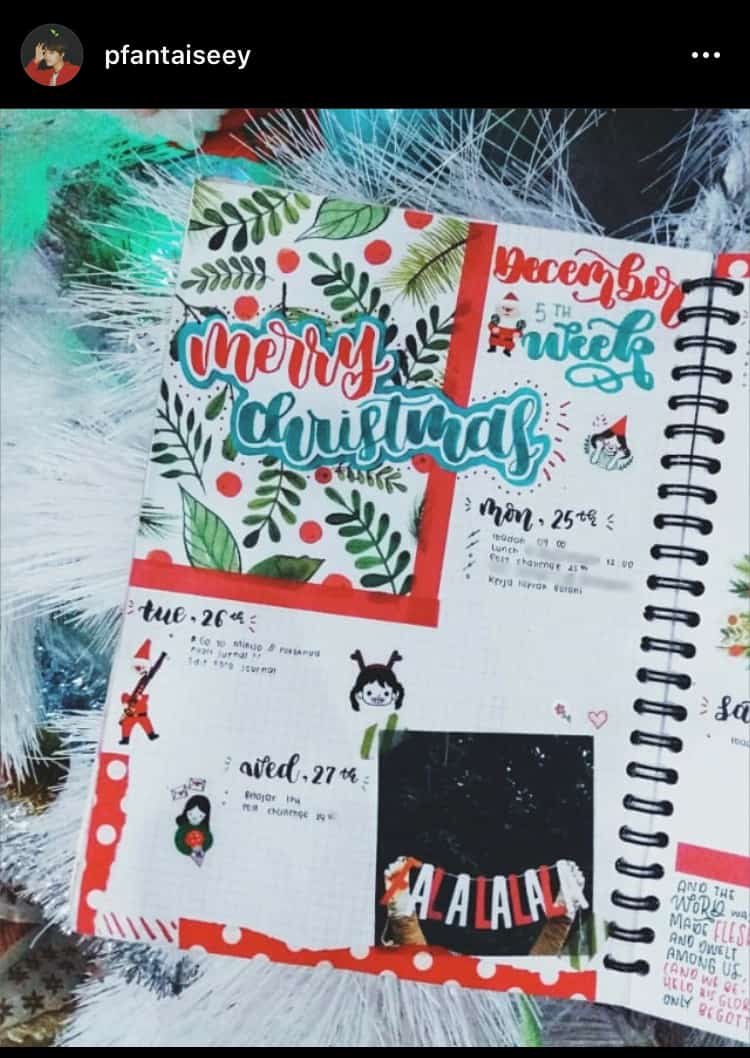 pfantaiseey
merry
christmas
December
5TH
week
mon, 25th
Ibadah 09.00
Lunch 12.00
Post challenge 25th
Kerja
tue, 26th
Go to
Edit Foto Journal
wed, 27th
Belajar
Post challenge
FALALALALA
Sa
AND THE
WORD WA
MADE FLES
AND DWELT
AMONG US,
(AND WE BE-
HELD HIS GLOR
ONLY BEGOTT